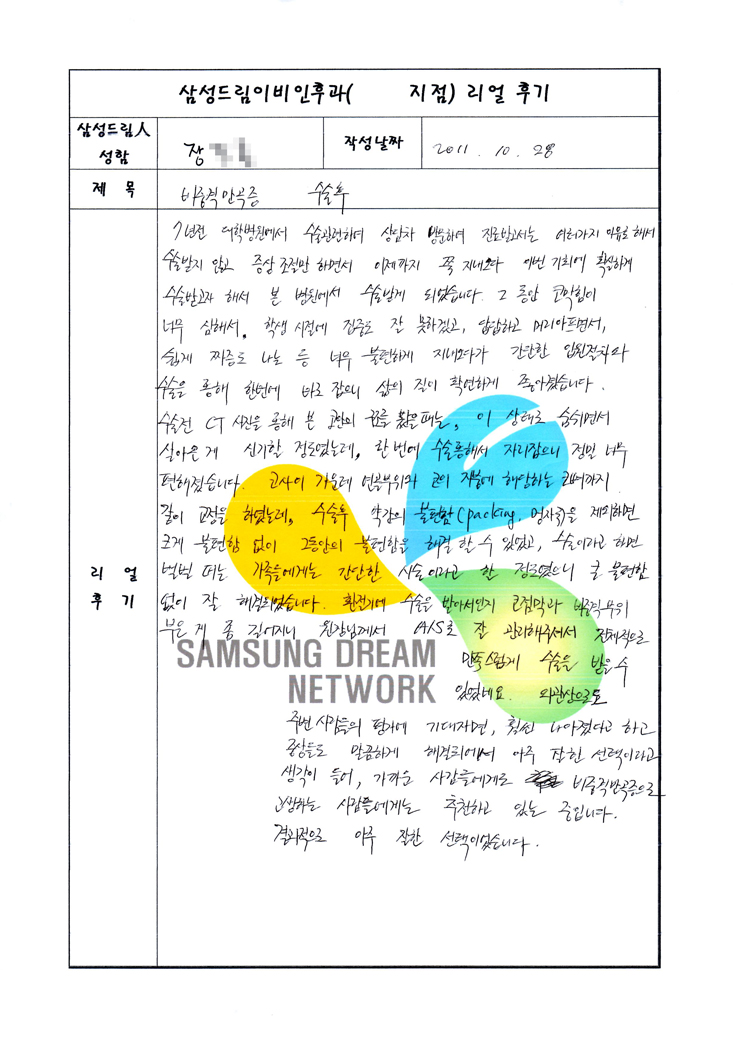 삼성드림이비인후과(        지점) 리얼 후기
삼성드림人
성함
장
작성날짜
2011. 10. 28
제 목
비중격만곡증 수술후
7년전 대학병원에서 수술관련하여 상담차 방문하여 진료받고서는 여러가지 이유로 해서
수술받지 않고 증상 조절만 하면서 이제까지 쭉 지내오다 이번 기회에 확실하게
수술받고자 해서 본 병원에서 수술받게 되었습니다. 그 동안 코막힘이
너무 심해서, 학생 시절에 집중도 잘 못하겠고, 답답하고 머리아프면서,
쉽게 짜증도 나는 등 너무 불편하게 지내오다가 간단한 입원절차와
수술을 통해 한번에 바로 잡으니 삶의 질이 확연하게 좋아졌습니다.
수술전 CT 사진을 통해 본 꼬를 봤을때는, 이 상태로 숨쉬면서
살아온 게 신기할 정도였는데, 한 번에 수술통해서 자리잡으니 정말 너무
편해졌습니다. 코사이 가운데 연골부위와 코의 지붕에 해당하는 코뼈까지
같이 교정을 하였는데, 수술후 약간의 불편함(packing, 멍자국)을 제외하면
크게 불편함 없이 그동안의 불편함을 해결 할 수 있었고, 수술이라고 하면
벌벌 떠는 가족들에게는 간단한 시술이라고 한 정도였으니 큰 불편함
없이 잘 해결되었습니다. 환절기에 수술을 받아서인지 코점막과 비중격부위
부은 게 좀 길어지니 원장님께서 A/S로 잘 관리해주셔서 전체적으로
만족스럽게 수술을 받을수
있었네요. 외관상으로도
주변 사람들의 평가에 기대자면, 훨씬 나아졌다고 하고
증상들도 말끔하게 해결되어서 아주 잘한 선택이라고
생각이 들어, 가까운 사람들에게로 비중격만곡증으로
고생하는 사람들에게는 추천하고 있는 중입니다.
결과적으로 아주 잘한 선택이었습니다.
리 얼
후 기
SAMSUNG DREAM
NETWORK